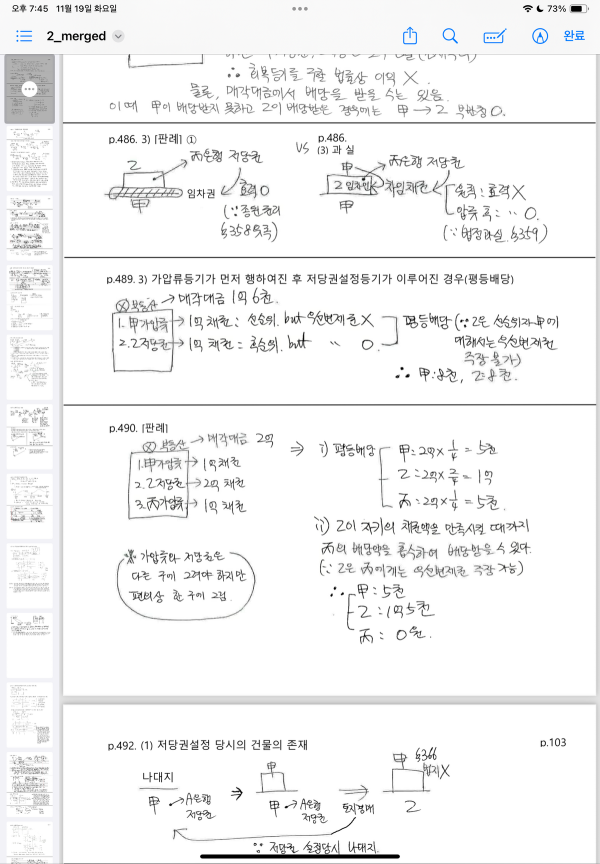 오후 7:45 11월 19일 화요일
73%
2_merged
완료
∴ 회복등기를 구할 법률상 이익 X.
물론, 매각대금에서 배당을 받을 수는 있음.
이때 甲이 배당받지 못하고 乙이 배당받은 경우에는 甲→乙 부반청 O.
p.486. 3) [판례] ①
乙
丙은행 저당권
임차권
甲
효력 O
(∵ 종원종리
§358유추)
VS
p.486.
(3) 과 실
甲
丙은행 저당권
乙 임차인
차임채권
甲
압류 후: 〃 O.
(∵ 법정과실. §359)
p.489. 3) 가압류등기가 먼저 행하여진 후 저당권설정등기가 이루어진 경우(평등배당)
Ⓧ 부동산 → 매각대금 1억 6천.
1. 甲가압류 → 1억 채권: 선순위. but 우선변제효 X
2. 乙저당권 → 1억 채권: 후순위. but 〃 O.
평등배당 (∵ 乙은 선순위자 甲에
대해서는 우선변제권
주장 불가)
∴ 甲:8천, 乙:8천.
p.490. [판례]
Ⓧ 부동산 → 매각대금 2억
1. 甲가압류 → 1억 채권
2. 乙저당권 → 2억 채권
3. 丙가압류 → 1억 채권
⇒ i) 평등배당
甲: 2억 × 1/4 = 5천
乙: 2억 × 2/4 = 1억
丙: 2억 × 1/4 = 5천.
ii) 乙이 자기의 채권액을 만족시킬 때까지
丙의 배당액을 흡수하여 배당받을 수 있다.
(∵ 乙은 丙에게는 우선변제권 주장 가능)
∴ 甲: 5천
乙: 1억 5천
丙: 0원.
※ 가압류와 저당권은
다른 구에 그려야 하지만
편의상 한 구에 그림.
p.492. (1) 저당권설정 당시의 건물의 존재
p.103
나대지
甲 → A은행
저당권
⇒
甲
甲 → A은행
저당권
⇒
토지경매
甲 §366
법지X
乙
∵ 저당권 설정당시 나대지.